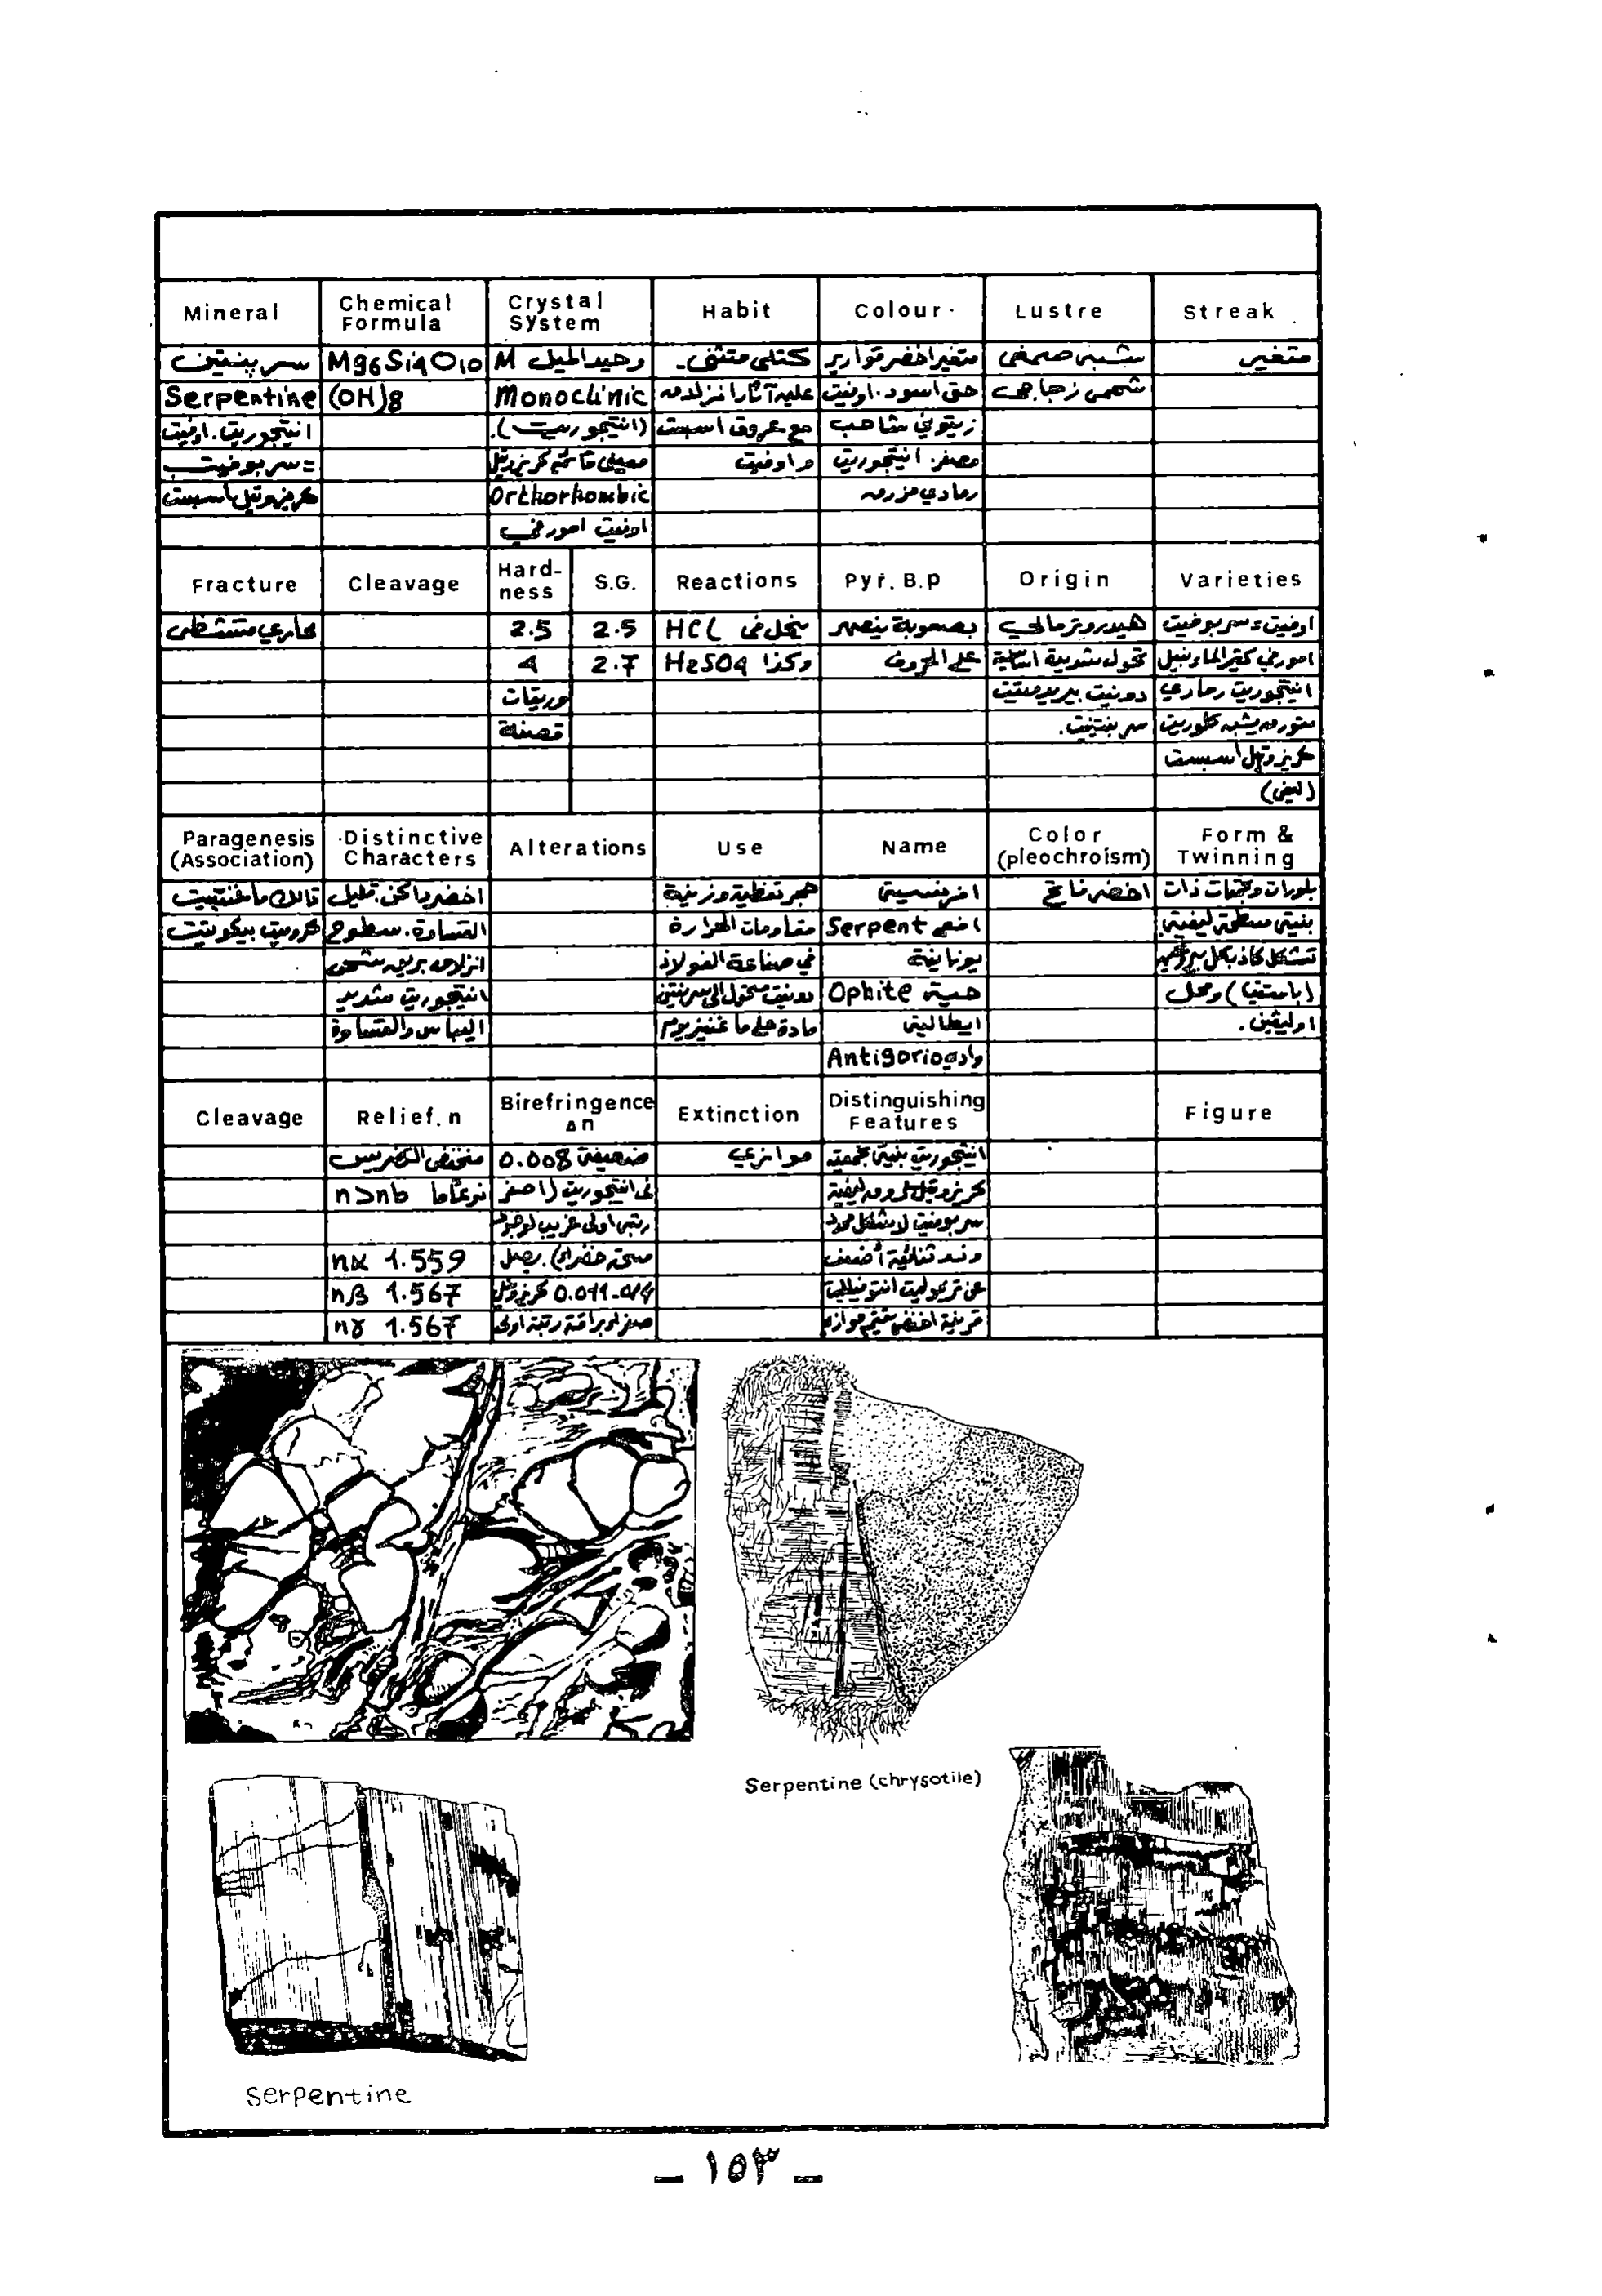 Mineral Chemical Formula Crystal System Habit Colour Lustre Streak
سربنتين Mg6Si4O10 وحيد الميل M كتلي متثني متغير اخضر قواريري شبه صمغي متغير
Serpentine (OH)8 Monoclinic عليه آثار انزلاق حتى اسود. اونيت شحمي زجاجي
انتيجوريت. اوفيت (انتيجوريت). مع عروق اسبست زيتوني شاحب
= سربوفيت معيني قائم كريزوتيل واوفيت مصفر. انتيجوريت
كريزوتيل اسبست Orthorhombic رمادي مزرق
اوفيت امورفي
Fracture Cleavage Hardness S.G. Reactions Pyr. B.p Origin Varieties
محاري متشظي 2.5 2.5 ينحل في HCl بصعوبة ينصهر هيدروترمالي اوفيت = سربوفيت
4 2.7 وكذا H2SO4 على الحروف تحول شديدة امورفي كتير الماء
وريقات دونيت بيريدوتيت انتيجوريت رمادي
قصفة سربنتنيت. متورق يشبه كلوريت
كريزوتيل اسبست
(ليفي)
Paragenesis (Association) Distinctive Characters Alterations Use Name Color (pleochroism) Form & Twinning
تالك ماغنتيت اخضر داكن. قليل حجر تغطية وزينة افرنسية اخضر فاتح بلورات وتجمعات ذات
كروميت بيكوتيت القساوة. سطوح مقاومات الحرارة افعى Serpent بنية مسطحة ليفية
انزلاق بريق شحمي في صناعة الفولاذ يونانية تشكل كاذب محل بيروكسين
انتيجوريت شديد دونيت متحول الى سربنتين حية Ophite (باستيت) ومحل
اليباس والقساوة مادة خام ماغنيزيوم ايطالية اوليفين.
وادي Antigorio
Cleavage Relief. n Birefringence Δn Extinction Distinguishing Features Figure
منخفض التضريس ضعيفة 0.008 موازي انتيجوريت بنية تجمعية
نوعاما n>nb في انتيجوريت (اصفر كريزوتيل عروق ليفية
رتبة اولى غريب لوجود سربوفيت لا شكل محدد
nα 1.559 مسحة خضراء). يصل وقد ثنائية أضعف
nβ 1.567 0.011-0.14 كريزوتيل عن تريموليت انتوفيلليت
nγ 1.567 صفراء براقة رتبة اولى قرينة اخفض
Serpentine (chrysotile)
Serpentine
- ١٥٣ -